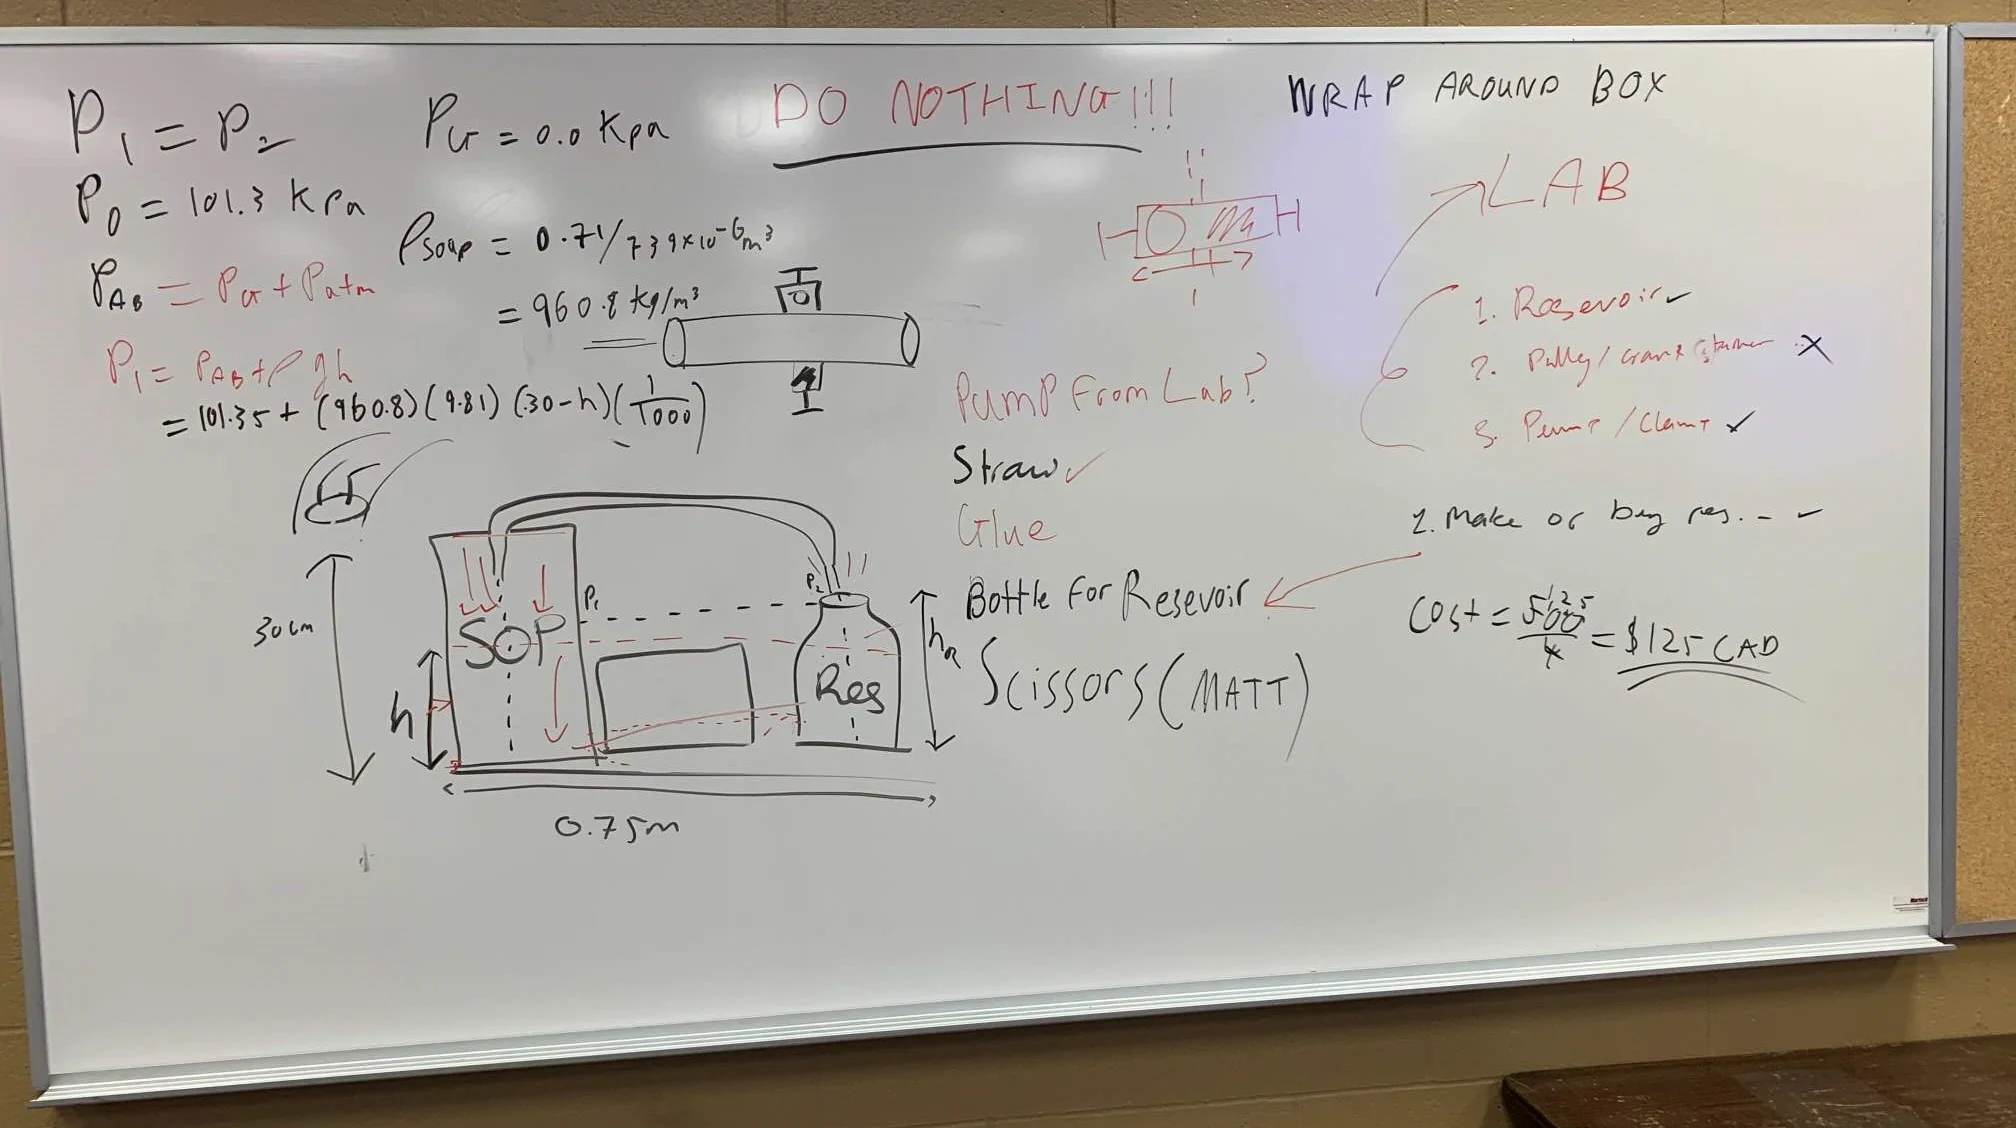 P₁ = P₂
P₀ = 101.3 KPa
P_AB = P_G + Patm
P₁ = P_AB + ρgh
= 101.35 + (960.8)(9.81)(.30-h)(1/1000)
P_G = 0.0 Kpa
ρ_soap = 0.71/739×10⁻⁶m³
= 960.8 kg/m³
DO NOTHING!!!
WRAP AROUND BOX
LAB
1. Resevoir ✓
2. Pully/crank X
3. Pump/Clamp ✓
Pump From Lab?
Straw ✓
Glue
Bottle For Resevoir
Scissors (MATT)
1. Make or buy res. - ✓
Cost = 500/4 = $125 CAD
125
30cm
h
SOP
P₁
P₂
Res
h_R
0.75m